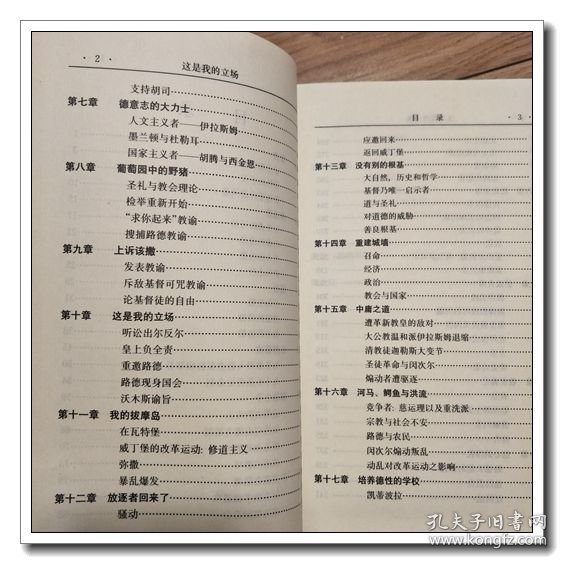 · 2 ·
这是我的立场
支持胡司
第七章 德意志的大力士
人文主义者——伊拉斯姆
墨兰顿与杜勒耳
国家主义者——胡腾与西金恩
第八章 葡萄园中的野猪
圣礼与教会理论
检举重新开始
“求你起来”教谕
搜捕路德教谕
第九章 上诉该撒
发表教谕
斥敌基督可咒教谕
论基督徒的自由
第十章 这是我的立场
听讼出尔反尔
皇上负全责
重邀路德
路德现身国会
沃木斯谕旨
第十一章 我的拔摩岛
在瓦特堡
威丁堡的改革运动: 修道主义
弥撒
暴乱爆发
第十二章 放逐者回来了
骚动
目 录
· 3 ·
应邀回来
返回威丁堡
第十三章 没有别的根基
大自然，历史和哲学
基督乃唯一启示者
道与圣礼
对道德的威胁
善良根基
第十四章 重建城墙
召命
经济
政治
教会与国家
第十五章 中庸之道
遭革新教皇的敌对
大公教温和派伊拉斯姆退缩
清教徒迦勒斯大变节
圣徒革命与闵次尔
煽动者遭驱逐
第十六章 河马、鳄鱼与洪流
竞争者: 慈运理以及重洗派
宗教与社会不安
路德与农民
闵次尔煽动叛乱
动乱对改革运动之影响
第十七章 培养德性的学校
凯蒂波拉
孔夫子旧书网
www.kongfz.com